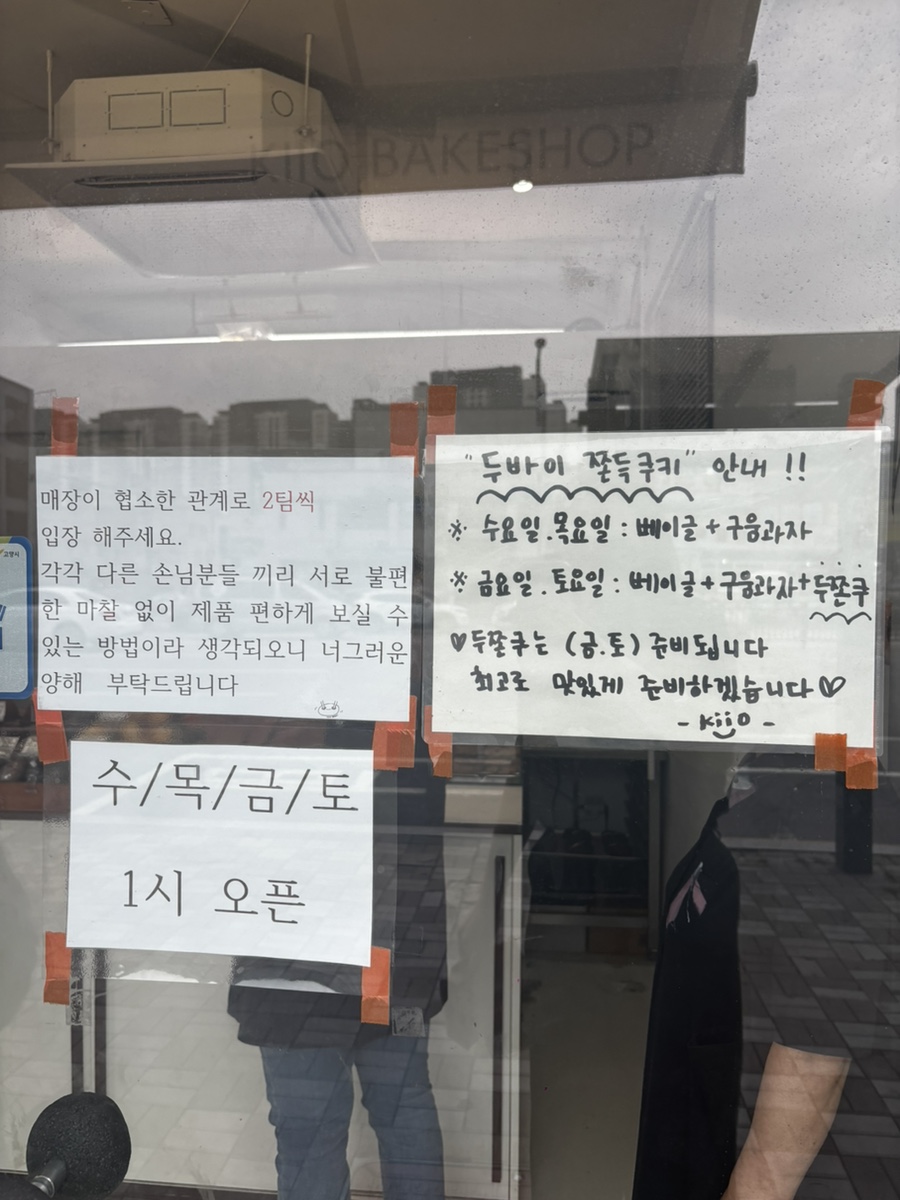 KIIO BAKESHOP
매장이 협소한 관계로 2팀씩
입장 해주세요.
각각 다른 손님분들 끼리 서로 불편
한 마찰 없이 제품 편하게 보실 수
있는 방법이라 생각되오니 너그러운
양해 부탁드립니다
수/목/금/토
1시 오픈
"두바이 쫀득쿠키" 안내 !!
※ 수요일.목요일 : 베이글 + 구움과자
※ 금요일.토요일 : 베이글 + 구움과자+두쫀쿠
♡두쫀쿠는 (금.토) 준비됩니다
최고로 맛있게 준비하겠습니다♡
- kiio -
고양시